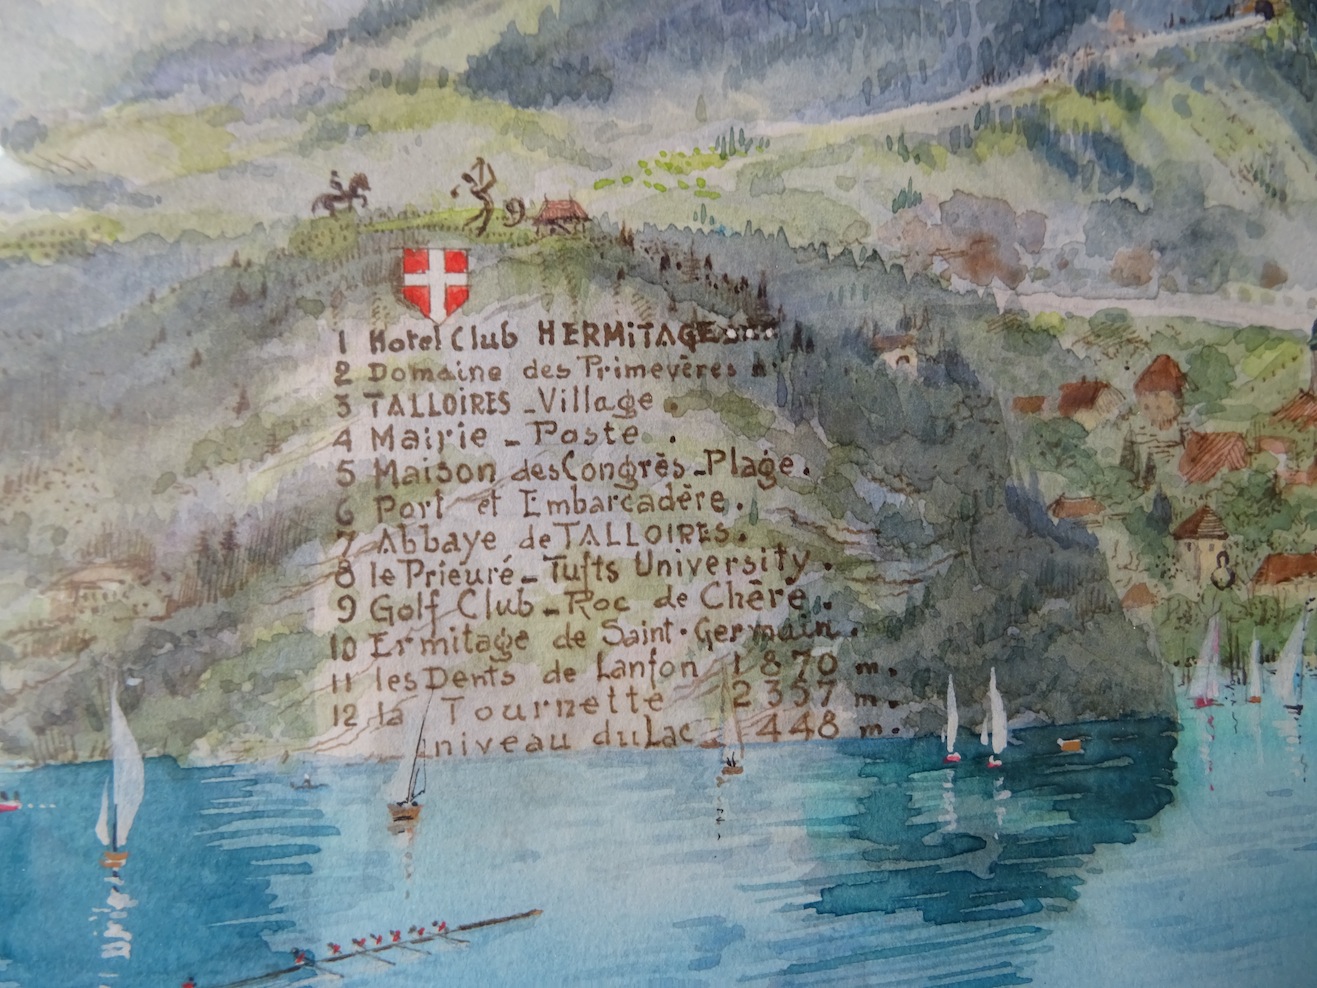 9
1 Hotel Club HERMiTAGE
2 Domaine des Primevères
3 TALLOIRES - Village.
4 Mairie - Poste.
5 Maison des Congrès - Plage.
6 Port et Embarcadère.
7 Abbaye de TALLOIRES.
8 le Prieuré - Tufts University.
9 Golf Club - Roc de Chère.
10 Ermitage de Saint-Germain.
11 les Dents de Lanfon 1870 m.
12 la Tournette 2357 m.
niveau du Lac 448 m.
8